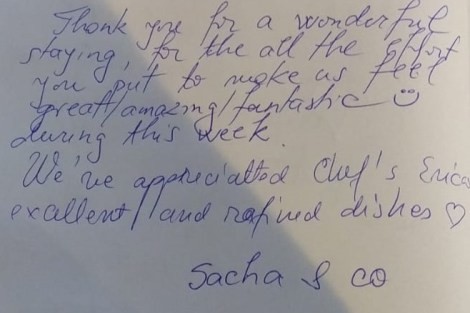 Thank you for a wonderful
staying, for the all the effort
you put to make us feel
great/amazing/fantastic ☺
during this week.
We've appreciatted Chef's Erica
exallent/and rafined dishes ♡
Sacha & co